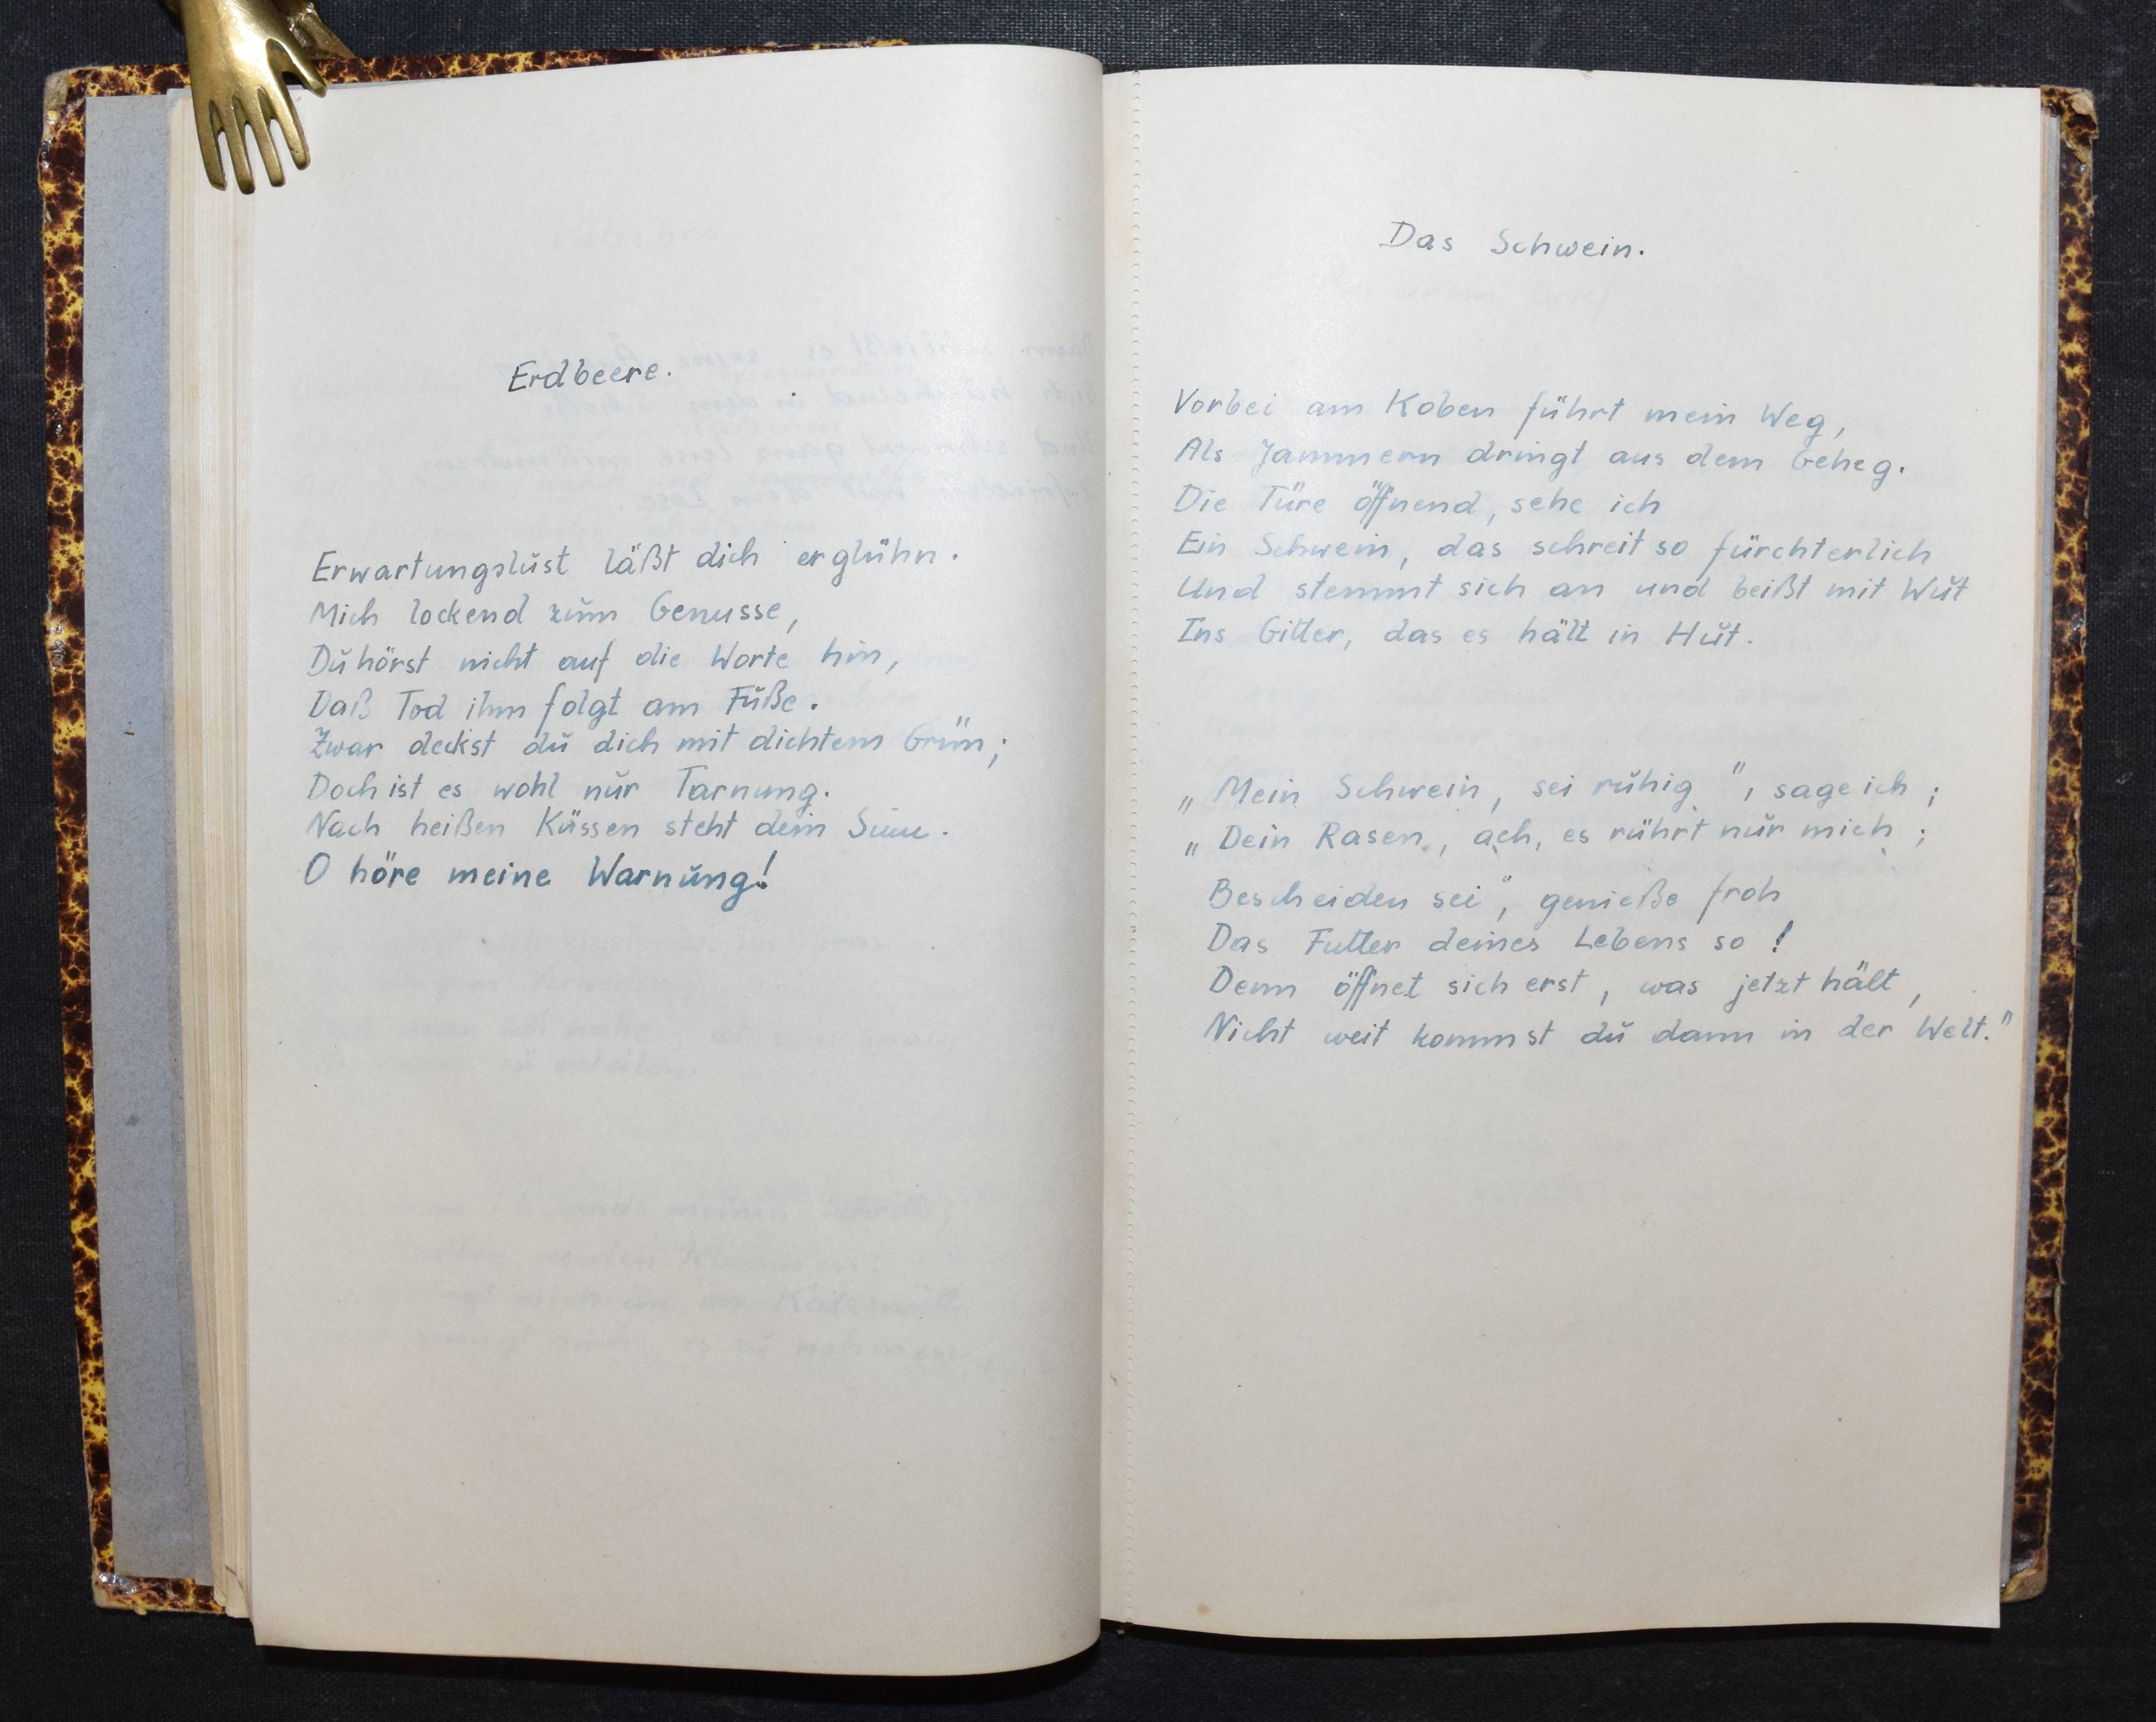 Erdbeere.
Erwartungslust läßt dich erglühn.
Mich lockend zum Genusse,
Du hörst nicht auf die Worte hin,
Daß Tod ihm folgt am Fuße.
Zwar deckst du dich mit dichtem Grün;
Doch ist es wohl nur Tarnung.
Nach heißen Küssen steht dein Sinn.
O höre meine Warnung!
Das Schwein.
Vorbei am Koben führt mein Weg,
Als Jammern dringt aus dem Geheg.
Die Türe öffnend, sehe ich
Ein Schwein, das schreit so fürchterlich
Und stemmt sich an und beißt mit Wut
Ins Gitter, das es hält in Hut.
„Mein Schwein, sei ruhig", sage ich;
„Dein Rasen, ach, es rührt nur mich;
Bescheiden sei", genieße froh
Das Futter deines Lebens so!
Denn öffnet sich erst, was jetzt hält,
Nicht weit kommst du dann in der Welt."